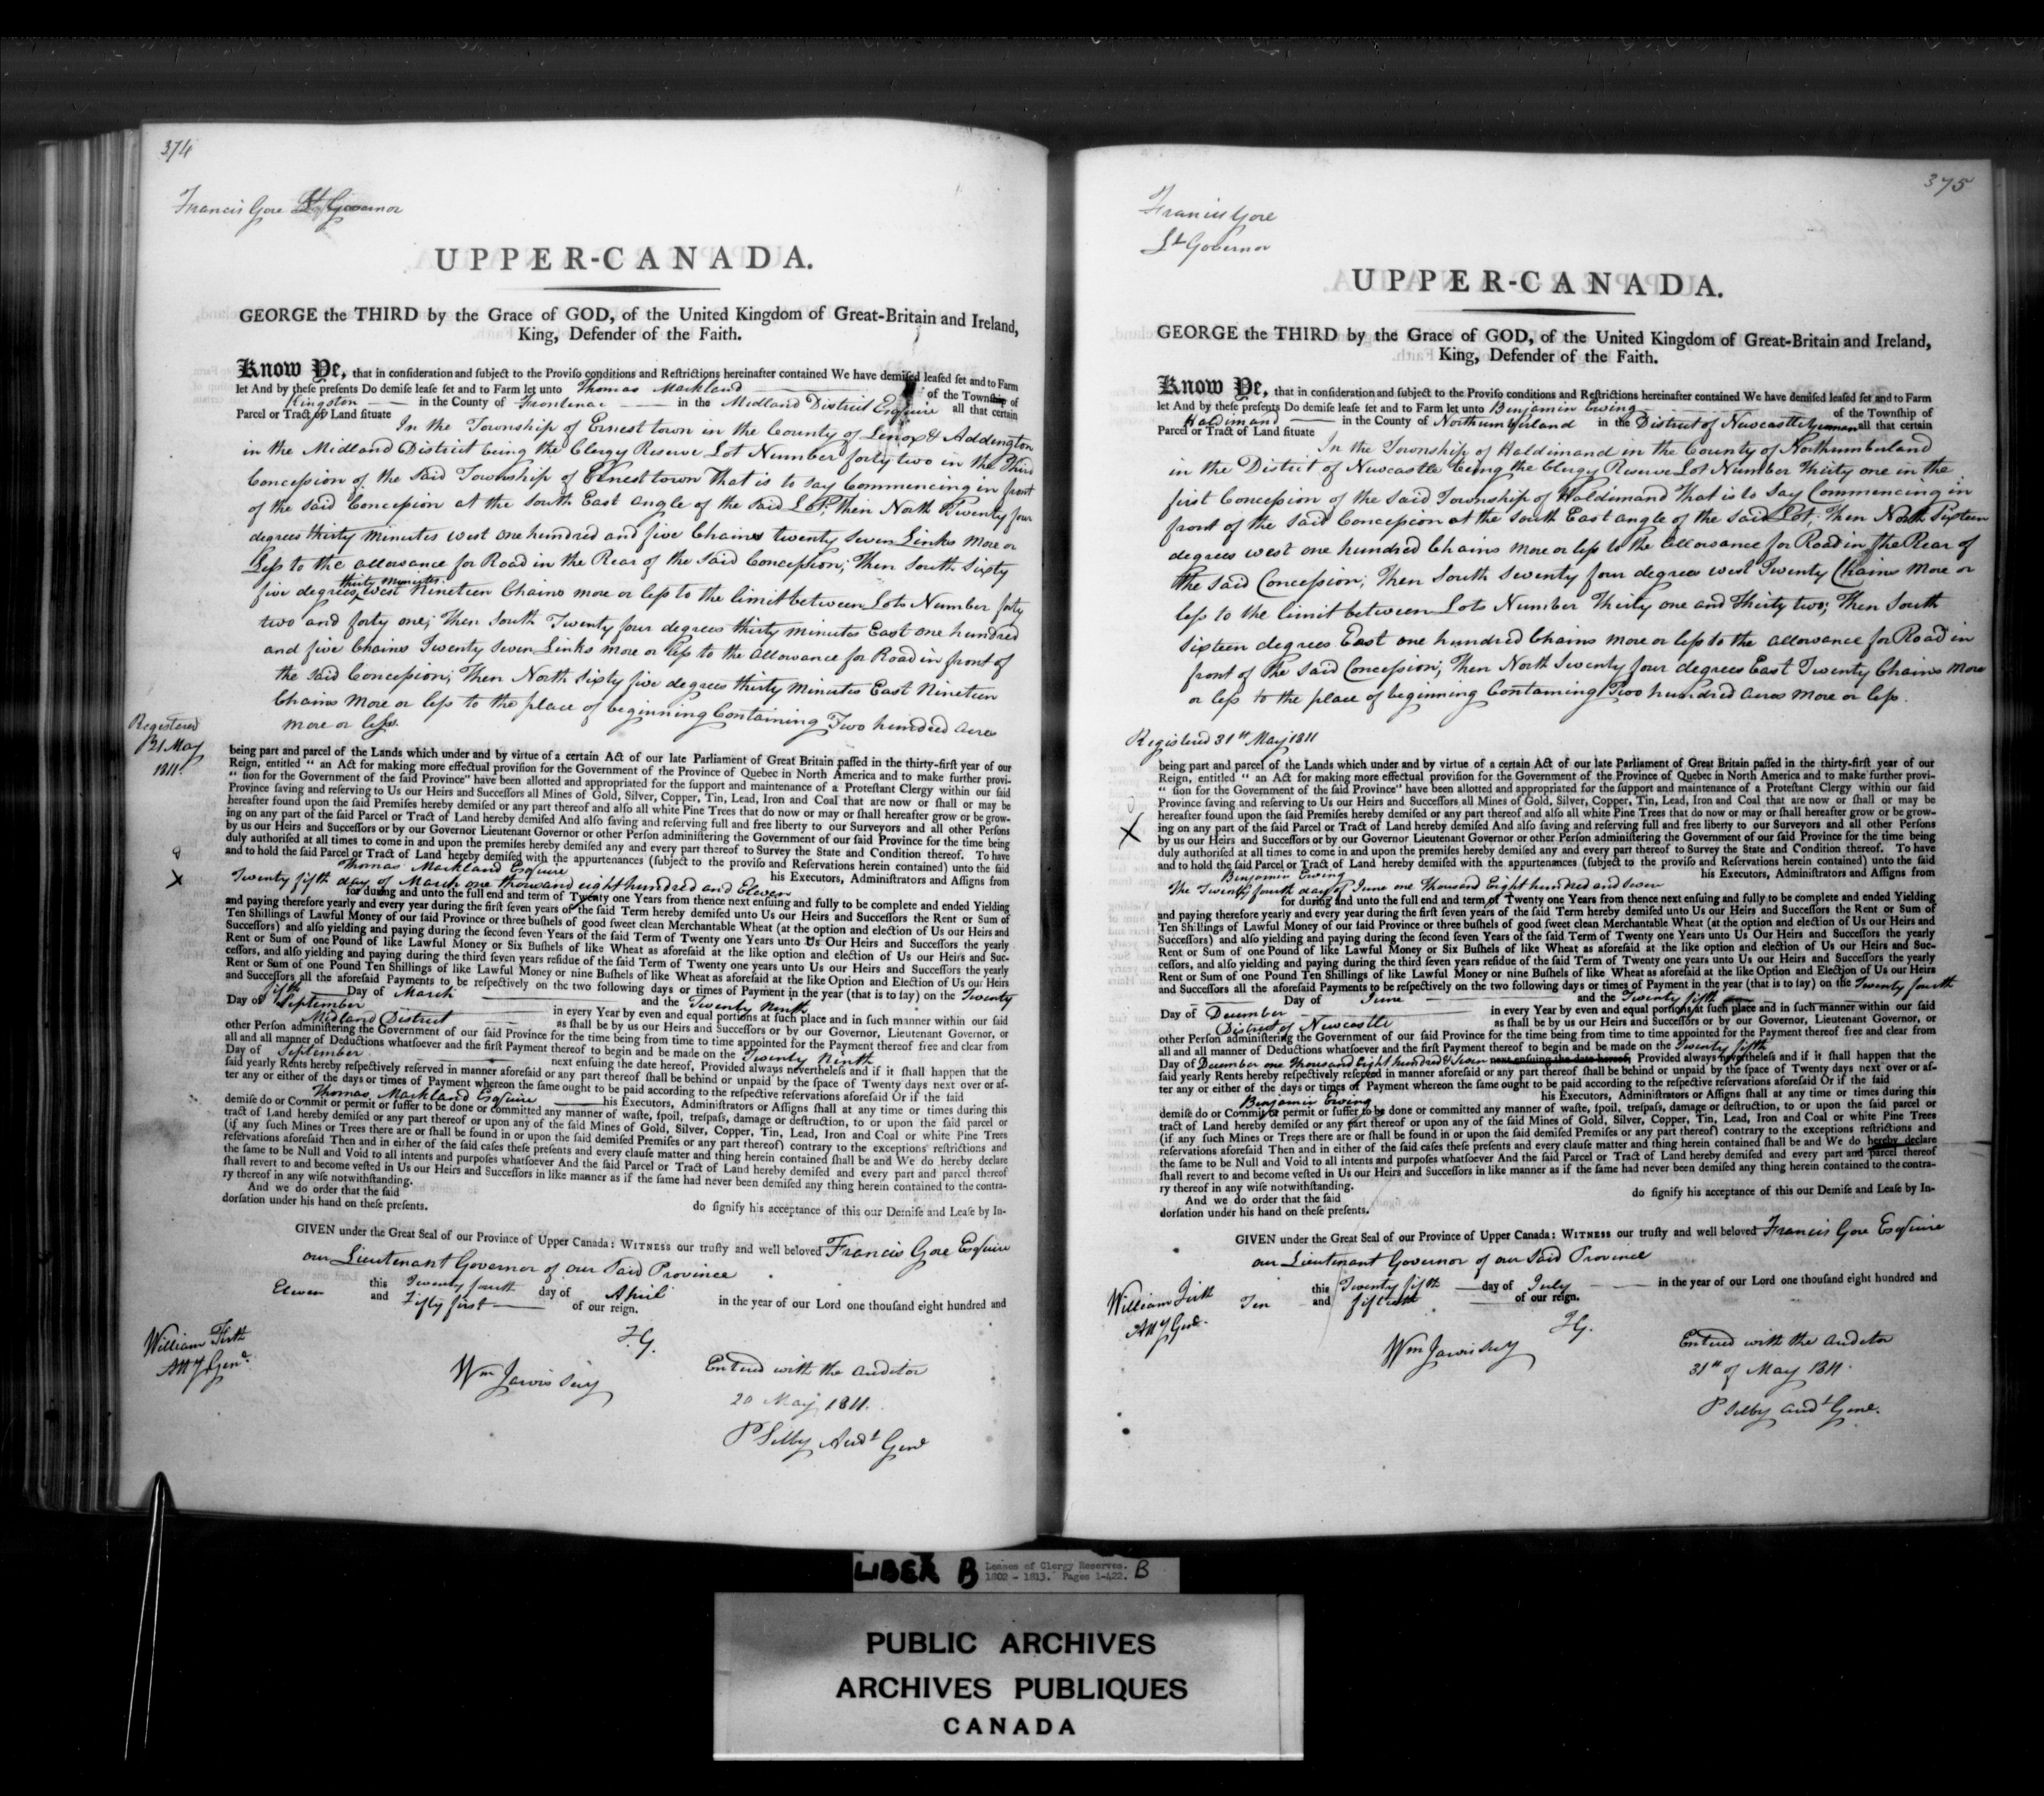 374
Francis Gore Lt Governor
UPPER-CANADA.
GEORGE the THIRD by the Grace of GOD, of the United Kingdom of Great-Britain and Ireland,
King, Defender of the Faith.
Know Ye, that in consideration and subject to the Proviso conditions and Restrictions hereinafter contained We have demised leased set and to Farm
let And by these presents Do demise lease set and to Farm let unto Thomas Markland of the Township of
Kingston in the County of Frontenac in the Midland District Esquire all that certain
Parcel or Tract of Land situate In the Township of Ernest town in the County of Lenox & Addington
in the Midland District being the Clergy Reserve Lot Number forty two in the Third
Concession of the said Township of Ernest town That is to say Commencing in front
of the said Concession at the South East angle of the said Lot; Then North Twenty four
degrees thirty minutes west one hundred and five Chains twenty seven Links more or
Less to the allowance for Road in the Rear of the said Concession; Then South Sixty
five degrees thirty minutes west Nineteen Chains more or less to the limit between Lots Number forty
two and forty one; Then South Twenty four degrees thirty minutes East one hundred
and five Chains Twenty seven Links more or less to the allowance for Road in front of
the said Concession; Then North Sixty five degrees thirty minutes East Nineteen
Chains more or less to the place of beginning Containing Two hundred acres
more or less.
Registered
21 May
1811.
being part and parcel of the Lands which under and by virtue of a certain Act of our late Parliament of Great Britain passed in the thirty-first year of our
Reign, entitled " an Act for making more effectual provision for the Government of the Province of Quebec in North America and to make further provi-
" sion for the Government of the said Province" have been allotted and appropriated for the support and maintenance of a Protestant Clergy within our said
Province saving and reserving to Us our Heirs and Successors all Mines of Gold, Silver, Copper, Tin, Lead, Iron and Coal that are now or shall or may be
hereafter found upon the said Premises hereby demised or any part thereof and also all white Pine Trees that do now or may or shall hereafter grow or be grow-
ing on any part of the said Parcel or Tract of Land hereby demised And also saving and reserving full and free liberty to our Surveyors and all other Persons
by us our Heirs and Successors or by our Governor Lieutenant Governor or other Person administering the Government of our said Province for the time being
duly authorised at all times to come in and upon the premises hereby demised any and every part thereof to Survey the State and Condition thereof. To have
and to hold the said Parcel or Tract of Land hereby demised with the appurtenances (subject to the proviso and Reservations herein contained) unto the said
Thomas Markland Esquire his Executors, Administrators and Assigns from
X
Twenty fifth day of March one thousand eight hundred and Eleven
for during and unto the full end and term of Twenty one Years from thence next ensuing and fully to be complete and ended Yielding
and paying therefore yearly and every year during the first seven years of the said Term hereby demised unto Us our Heirs and Successors the Rent or Sum of
Ten Shillings of Lawful Money of our said Province or three bushels of good sweet clean Merchantable Wheat (at the option and election of Us our Heirs and
Successors) and also yielding and paying during the second seven Years of the said Term of Twenty one Years unto Us Our Heirs and Successors the yearly
Rent or Sum of one Pound of like Lawful Money or Six Bushels of like Wheat as aforesaid at the like option and election of Us our Heirs and Suc-
cessors, and also yielding and paying during the third seven years residue of the said Term of Twenty one years unto Us our Heirs and Successors the yearly
Rent or Sum of one Pound Ten Shillings of like Lawful Money or nine Bushels of like Wheat as aforesaid at the like Option and Election of Us our Heirs
and Successors all the aforesaid Payments to be respectively on the two following days or times of Payment in the year (that is to say) on the Twenty
fifth Day of March and the Twenty Ninth
Day of September in every Year by even and equal portions at such place and in such manner within our said
Midland District as shall be by us our Heirs and Successors or by our Governor, Lieutenant Governor, or
other Person administering the Government of our said Province for the time being from time to time appointed for the Payment thereof free and clear from
all and all manner of Deductions whatsoever and the first Payment thereof to begin and be made on the Twenty Ninth
Day of September next ensuing the date hereof, Provided always nevertheless and if it shall happen that the
said yearly Rents hereby respectively reserved in manner aforesaid or any part thereof shall be behind or unpaid by the space of Twenty days next over or af-
ter any or either of the days or times of Payment whereon the same ought to be paid according to the respective reservations aforesaid Or if the said
Thomas Markland Esquire his Executors, Administrators or Assigns shall at any time or times during this
demise do or Commit or permit or suffer to be done or committed any manner of waste, spoil, trespass, damage or destruction, to or upon the said parcel or
tract of Land hereby demised or any part thereof or upon any of the said Mines of Gold, Silver, Copper, Tin, Lead, Iron and Coal or white Pine Trees
(if any such Mines or Trees there are or shall be found in or upon the said demised Premises or any part thereof) contrary to the exceptions restrictions and
reservations aforesaid Then and in either of the said cases these presents and every clause matter and thing herein contained shall be and We do hereby declare
the same to be Null and Void to all intents and purposes whatsoever And the said Parcel or Tract of Land hereby demised and every part and parcel thereof
shall revert to and become vested in Us our Heirs and Successors in like manner as if the same had never been demised any thing herein contained to the contra-
ry thereof in any wise notwithstanding.
And we do order that the said do signify his acceptance of this our Demise and Lease by In-
dorsation under his hand on these presents.
GIVEN under the Great Seal of our Province of Upper Canada: WITNESS our trusty and well beloved Francis Gore Esquire
our Lieutenant Governor of our said Province
this Twenty fourth day of April in the year of our Lord one thousand eight hundred and
Eleven and Fifty first of our reign.
F.G.
William Firth
Atty Genl.
Wm Jarvis Secy
Entered with the Auditor
20 May 1811.
P Selby Audt Genl
375
Francis Gore
Lt Governor
UPPER-CANADA.
GEORGE the THIRD by the Grace of GOD, of the United Kingdom of Great-Britain and Ireland,
King, Defender of the Faith.
Know Ye, that in consideration and subject to the Proviso conditions and Restrictions hereinafter contained We have demised leased set and to Farm
let And by these presents Do demise lease set and to Farm let unto Benjamin Ewing of the Township of
Haldimand in the County of Northumberland in the District of Newcastle Yeoman all that certain
Parcel or Tract of Land situate In the Township of Haldimand in the County of Northumberland
in the District of Newcastle being the Clergy Reserve Lot Number Thirty one in the
first Concession of the said Township of Haldimand That is to say Commencing in
front of the said Concession at the South East angle of the said Lot; Then North Sixteen
degrees west one hundred Chains more or less to the allowance for Road in the Rear of
the said Concession; Then South Seventy four degrees west Twenty Chains more or
less to the limit between Lots Number Thirty one and Thirty two; Then South
Sixteen degrees East one hundred Chains more or less to the allowance for Road in
front of the said Concession; Then North Seventy four degrees East Twenty Chains more
or less to the place of beginning Containing Two hundred acres more or less.
Registered 31st May 1811
being part and parcel of the Lands which under and by virtue of a certain Act of our late Parliament of Great Britain passed in the thirty-first year of our
Reign, entitled " an Act for making more effectual provision for the Government of the Province of Quebec in North America and to make further provi-
" sion for the Government of the said Province" have been allotted and appropriated for the support and maintenance of a Protestant Clergy within our said
Province saving and reserving to Us our Heirs and Successors all Mines of Gold, Silver, Copper, Tin, Lead, Iron and Coal that are now or shall or may be
hereafter found upon the said Premises hereby demised or any part thereof and also all white Pine Trees that do now or may or shall hereafter grow or be grow-
X
ing on any part of the said Parcel or Tract of Land hereby demised And also saving and reserving full and free liberty to our Surveyors and all other Persons
by us our Heirs and Successors or by our Governor Lieutenant Governor or other Person administering the Government of our said Province for the time being
duly authorised at all times to come in and upon the premises hereby demised any and every part thereof to Survey the State and Condition thereof. To have
and to hold the said Parcel or Tract of Land hereby demised with the appurtenances (subject to the proviso and Reservations herein contained) unto the said
Benjamin Ewing his Executors, Administrators and Assigns from
The Twenty fourth day of June one Thousand Eight hundred and seven
for during and unto the full end and term of Twenty one Years from thence next ensuing and fully to be complete and ended Yielding
and paying therefore yearly and every year during the first seven years of the said Term hereby demised unto Us our Heirs and Successors the Rent or Sum of
Ten Shillings of Lawful Money of our said Province or three bushels of good sweet clean Merchantable Wheat (at the option and election of Us our Heirs and
Successors) and also yielding and paying during the second seven Years of the said Term of Twenty one Years unto Us Our Heirs and Successors the yearly
Rent or Sum of one Pound of like Lawful Money or Six Bushels of like Wheat as aforesaid at the like option and election of Us our Heirs and Suc-
cessors, and also yielding and paying during the third seven years residue of the said Term of Twenty one years unto Us our Heirs and Successors the yearly
Rent or Sum of one Pound Ten Shillings of like Lawful Money or nine Bushels of like Wheat as aforesaid at the like Option and Election of Us our Heirs
and Successors all the aforesaid Payments to be respectively on the two following days or times of Payment in the year (that is to say) on the Twenty fourth
Day of June and the Twenty fifth
Day of December in every Year by even and equal portions at such place and in such manner within our said
District of Newcastle as shall be by us our Heirs and Successors or by our Governor, Lieutenant Governor, or
other Person administering the Government of our said Province for the time being from time to time appointed for the Payment thereof free and clear from
all and all manner of Deductions whatsoever and the first Payment thereof to begin and be made on the Twenty fifth
Day of December one thousand eight hundred & seven next ensuing the date hereof, Provided always nevertheless and if it shall happen that the
said yearly Rents hereby respectively reserved in manner aforesaid or any part thereof shall be behind or unpaid by the space of Twenty days next over or af-
ter any or either of the days or times of Payment whereon the same ought to be paid according to the respective reservations aforesaid Or if the said
Benjamin Ewing his Executors, Administrators or Assigns shall at any time or times during this
demise do or Commit or permit or suffer to be done or committed any manner of waste, spoil, trespass, damage or destruction, to or upon the said parcel or
tract of Land hereby demised or any part thereof or upon any of the said Mines of Gold, Silver, Copper, Tin, Lead, Iron and Coal or white Pine Trees
(if any such Mines or Trees there are or shall be found in or upon the said demised Premises or any part thereof) contrary to the exceptions restrictions and
reservations aforesaid Then and in either of the said cases these presents and every clause matter and thing herein contained shall be and We do hereby declare
the same to be Null and Void to all intents and purposes whatsoever And the said Parcel or Tract of Land hereby demised and every part and parcel thereof
shall revert to and become vested in Us our Heirs and Successors in like manner as if the same had never been demised any thing herein contained to the contra-
ry thereof in any wise notwithstanding.
And we do order that the said do signify his acceptance of this our Demise and Lease by In-
dorsation under his hand on these presents.
GIVEN under the Great Seal of our Province of Upper Canada: WITNESS our trusty and well beloved Francis Gore Esquire
our Lieutenant Governor of our said Province
this Twenty fifth day of July in the year of our Lord one thousand eight hundred and
Ten and fiftieth of our reign.
F.G.
William Firth
Atty Genl.
Wm Jarvis Secy
Entered with the Auditor
31st of May 1811.
P Selby Audt Genl.
LIBER B Leases of Clergy Reserves. B
1802 - 1813. Pages 1-422.
PUBLIC ARCHIVES
ARCHIVES PUBLIQUES
CANADA